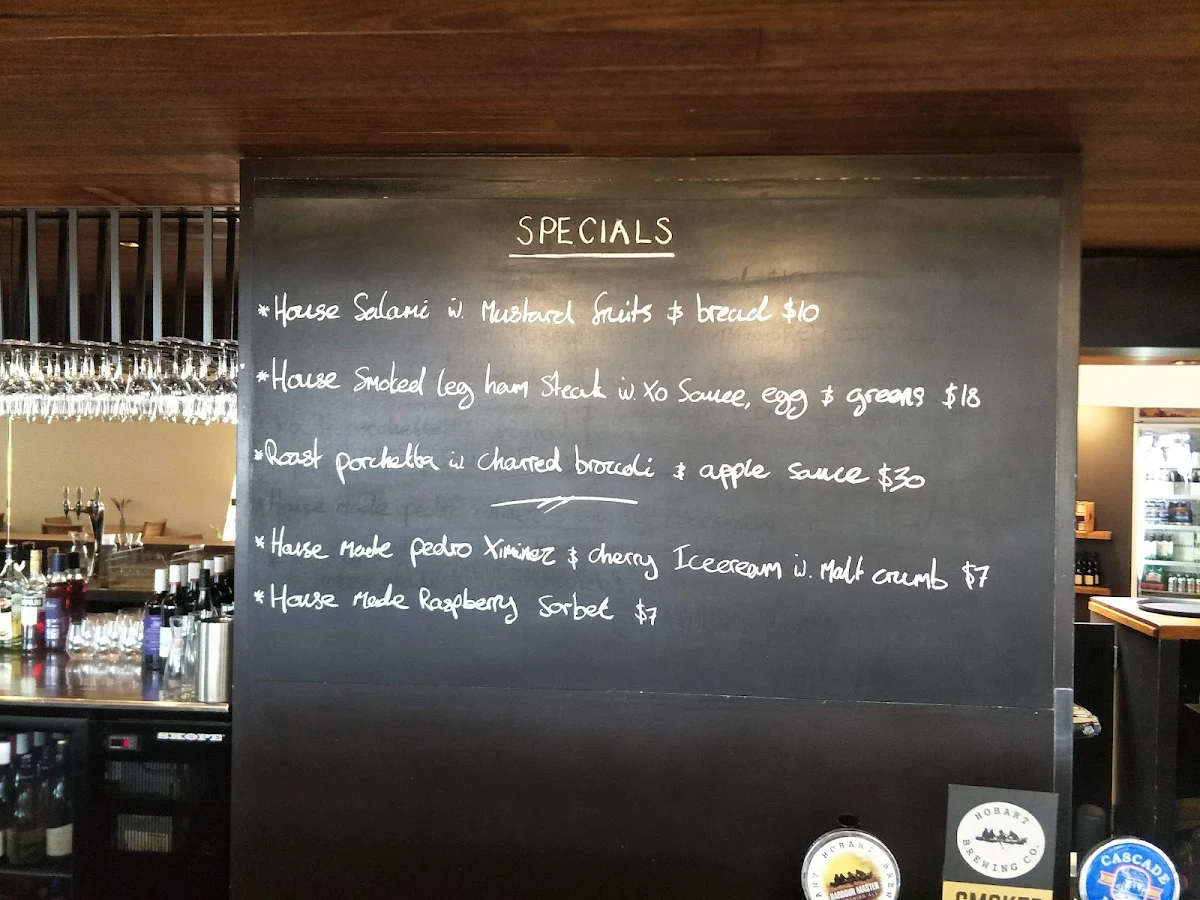 SPECIALS
*House Salami w. Mustard fruits & bread $10
*House Smoked leg ham Steak w. Xo Sauce, egg & greens $18
*Roast porchetta w charred broccoli & apple sauce $30
*House made pedro Ximinez & cherry Icecream w. Malt crumb $7
*House Made Raspberry Sorbet $7
SKOPE
HOBART
HARBOUR MASTER
HOBART
BREWING CO.
SMOKED
CASCADE